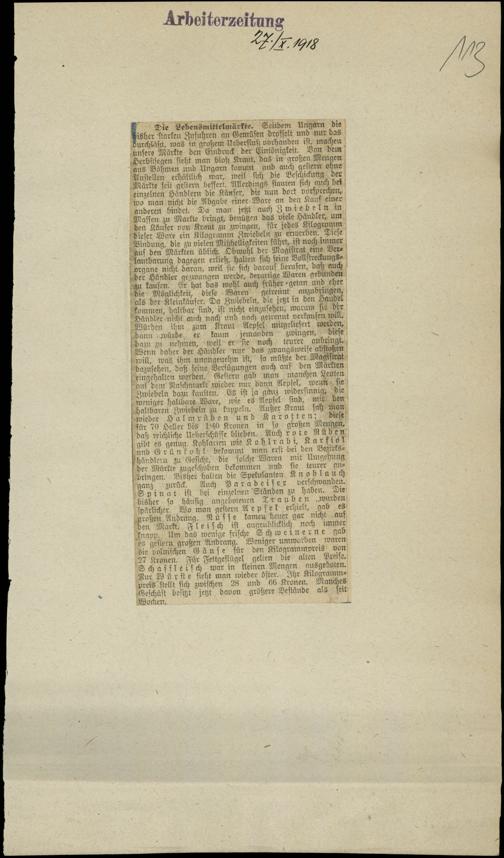 Arbeiterzeitung
27./X. 1918
113
Die Lebensmittelmärkte. Seitdem Ungarn die
bisher starken Zufuhren an Gemüsen drosselt und nur das
durchläßt, was in großem Ueberfluß vorhanden ist, machen
unsere Märkte den Eindruck der Eintönigkeit. Von dem
Herbstsegen sieht man bloß Kraut, das in großen Mengen
aus Böhmen und Ungarn kommt und auch gestern ohne
Anstellen erhältlich war, weil sich die Beschickung der
Märkte seit gestern bessert. Allerdings stauten sich auch bei
einzelnen Händlern die Käufer, die nur dort vorsprechen,
wo man nicht die Abgabe einer Ware an den Kauf einer
anderen bindet. Da man jetzt auch Zwiebeln in
Massen zu Markte bringt, benützen das viele Händler, um
den Käufer von Kraut zu zwingen, für jedes Kilogramm
dieser Ware ein Kilogramm Zwiebeln zu erwerben. Diese
Bindung, die zu vielen Mißhelligkeiten führt, ist noch immer
auf den Märkten üblich. Obwohl der Magistrat eine Ver-
lautbarung dagegen erließ, halten sich seine Vollstreckungs-
organe nicht daran, weil sie sich darauf berufen, daß auch
der Händler gezwungen werde, derartige Waren gebunden
zu kaufen. Er hat das wohl auch früher getan und eher
die Möglichkeit, diese Waren getrennt anzubringen,
als der Kleinkäufer. Da Zwiebeln, die jetzt in den Handel
kommen, haltbar sind, ist nicht einzusehen, warum sie der
Händler nicht auch nach und nach getrennt verkaufen will.
Würden ihm zum Kraut Aepfel mitgeliefert werden,
dann würde er kaum jemanden zwingen, diese
dazu zu nehmen, weil er sie noch teurer anbringt.
Wenn daher der Händler nur das zwangsweise abstoßen
will, was ihm unangenehm ist, so müßte der Magistrat
dazusehen, daß seine Verfügungen auch auf den Märkten
eingehalten werden. Gestern gab man manchen Leuten
auf dem Naschmarkt wieder nur dann Aepfel, wenn sie
Zwiebeln dazu kauften. Es ist ja ganz widersinnig, die
weniger haltbare Ware, wie es Aepfel sind, mit den
haltbaren Zwiebeln zu kuppeln. Außer Kraut sah man
wieder Halmrüben und Karotten; diese
für 70 Heller bis 1·40 Kronen in so großen Mengen,
daß reichliche Ueberschüsse blieben. Auch rote Rüben
gibt es genug. Kohlarten wie Kohlrabi, Karfiol
und Grünkohl bekommt man erst bei den Bezirks-
händlern zu Gesicht, die solche Waren mit Umgehung
der Märkte zugeschoben bekommen und sie teurer an-
bringen. Bisher halten die Spekulanten Knoblauch
ganz zurück. Auch Paradeiser verschwanden.
Spinat ist bei einzelnen Ständen zu haben. Die
bisher so häufig angebotenen Trauben wurden
spärlicher. Wo man gestern Aepfel erhielt, gab es
großen Andrang. Nüsse kamen heuer gar nicht auf
den Markt. Fleisch ist augenblicklich noch immer
knapp. Um das wenige frische Schweinerne gab
es gestern großen Andrang. Weniger umworben waren
die polnischen Gänse für den Kilogrammpreis von
27 Kronen. Für Fettgeflügel gelten die alten Preise.
Schaffleisch war in kleinen Mengen ausgeboten.
Nur Würste sieht man wieder öfter. Ihr Kilogramm-
preis stellt sich zwischen 28 und 66 Kronen. Manches
Geschäft besitzt jetzt davon größere Bestände als seit
Wochen.